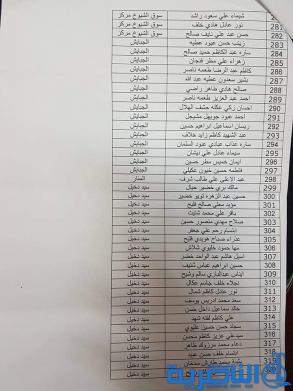 281 شيماء علي سعود راشد سوق الشيوخ مركز
282 نور عادل هادي خلف سوق الشيوخ مركز
حسن عبد علي نايف صالح سوق الشيوخ مركز
283 زينب حسن عبود عطيه الجبايش
284 ساره عبد الكاظم حميد صالح الجبايش
285 زهراء علي مطر فنجان الجبايش
286 كاظم عبد الرضا طعمه ناصر الجبايش
287 بشير سعدون عطيه عبد الله الجبايش
288 صالح هادي طاهر راضي الجبايش
289 احمد عبد العزيز طعمه ناصر الجبايش
290 احسان زكي عكله حشف الهلال الجبايش
291 احمد عبود جويبل مشيجل الجبايش
292 ريسان اسماعيل ابراهيم حسين الجبايش
293 عبد الشهيد كاظم زايد خلاف الجبايش
294 ساره عذاب عبادي عبود السلمان الجبايش
295 سيماء عادل علي نيشان الجبايش
296 ايمان خميس مطر حسين الجبايش
297 فاطمه حسين خيون عكيلي الجبايش
298 عبد الاعلى علي طالب شرف المنار
299 مالك بري خضير جبال سيد دخيل
300 حسين عبد الزهره لويز خضير سيد دخيل
301 مؤيد سعلي صالح فليح سيد دخيل
302 باقر علي محمد شايت سيد دخيل
303 صلاح مهدي منصور حسين سيد دخيل
304 ابتسام رحم علي جعفر سيد دخيل
305 عذراء صباح هويدي فليح سيد دخيل
306 مها حمود خليوي شلاش سيد دخيل
307 اسيل هاشم عبد الواحد خضر سيد دخيل
308 حسين ابراهيم عباس شنيف سيد دخيل
309 ايناس عبدالباري سالم وشيح سيد دخيل
310 نجلاء خلف جاسم عكال سيد دخيل
311 نور عادل كاظم شمال سيد دخيل
312 سعد محمد ادريس يوسف سيد دخيل
313 خالد اسماعيل داخل حسن سيد دخيل
314 علي كاظم لفته شهد سيد دخيل
315 سجاد حسن حسين عليوي سيد دخيل
316 سيف علي عزيز كاظم محسن سيد دخيل
317 دعاء محمد مرزوك طاهر سيد دخيل
318 ابتسام خلف حسن عبد سيد دخيل
319 محمد طارش سيد دخيل
320
الناصرية